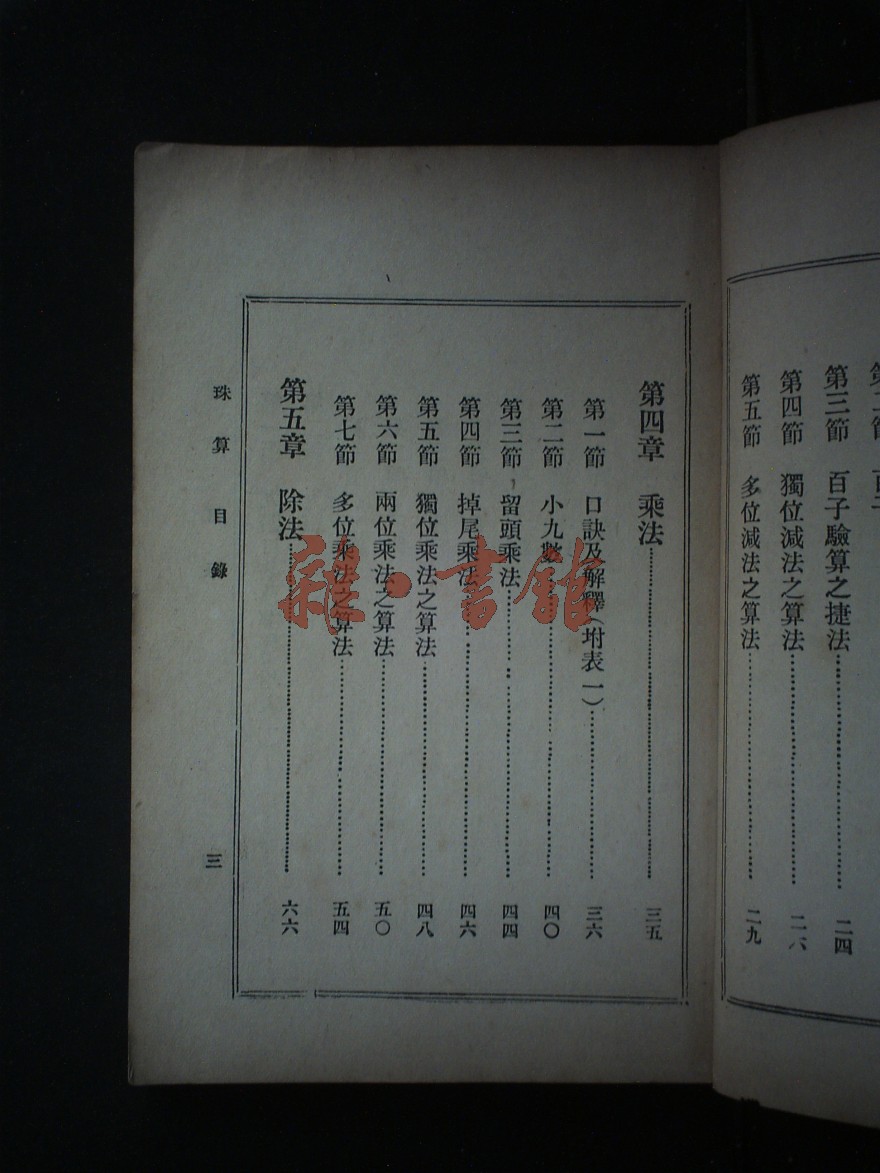 第三節　百子驗算之捷法……二四
第四節　獨位減法之算法……二六
第五節　多位減法之算法……二九
第四章　乘法……三五
第一節　口訣及解釋（坿表一）……三六
第二節　小九數……四〇
第三節　留頭乘法……四四
第四節　掉尾乘法……四六
第五節　獨位乘法之算法……四八
第六節　兩位乘法之算法……五〇
第七節　多位乘法之算法……五四
第五章　除法……六六
珠算目錄　三
雜·書館